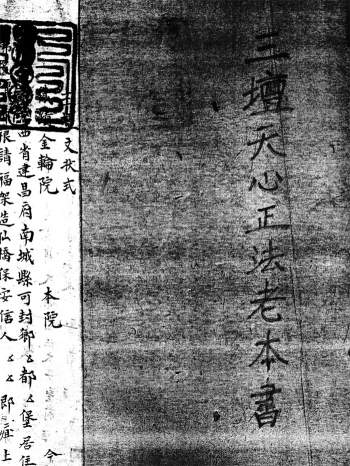 三壇天心正法老本書
文狀式
金輪院　本院　今
西省建昌府南城縣可封鄉厶都厶堡居住
請福架造仙橋保安信人厶厶即